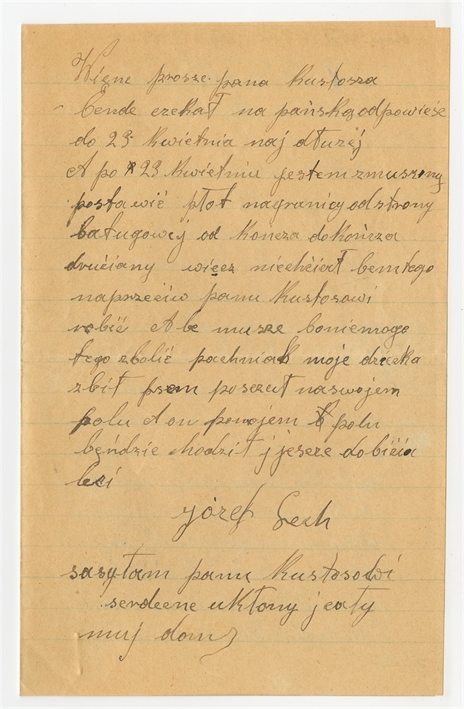 Więne prosze pana Kustosza
bende czekał na pańską odpowieść
do 29 kwietnia naj dłużej
A po 29 kwietniu jestem zmuszony
postawić płot nagranicy od strony
batugowej od Kończa do Kończa
druciany więcz niechciał bem tego
naprzeciw panu Kustosowi
robić Ale musze bo niemoge
tego zbolić pochniak moje dziecka
zbił psem poszczuł naswojem
polu A on pomojem polu
będzie chodził j jesze do bicia
leci
józef Lech
sasyłam panu Kustosowi
serdecne ukłony j cały
muj dom